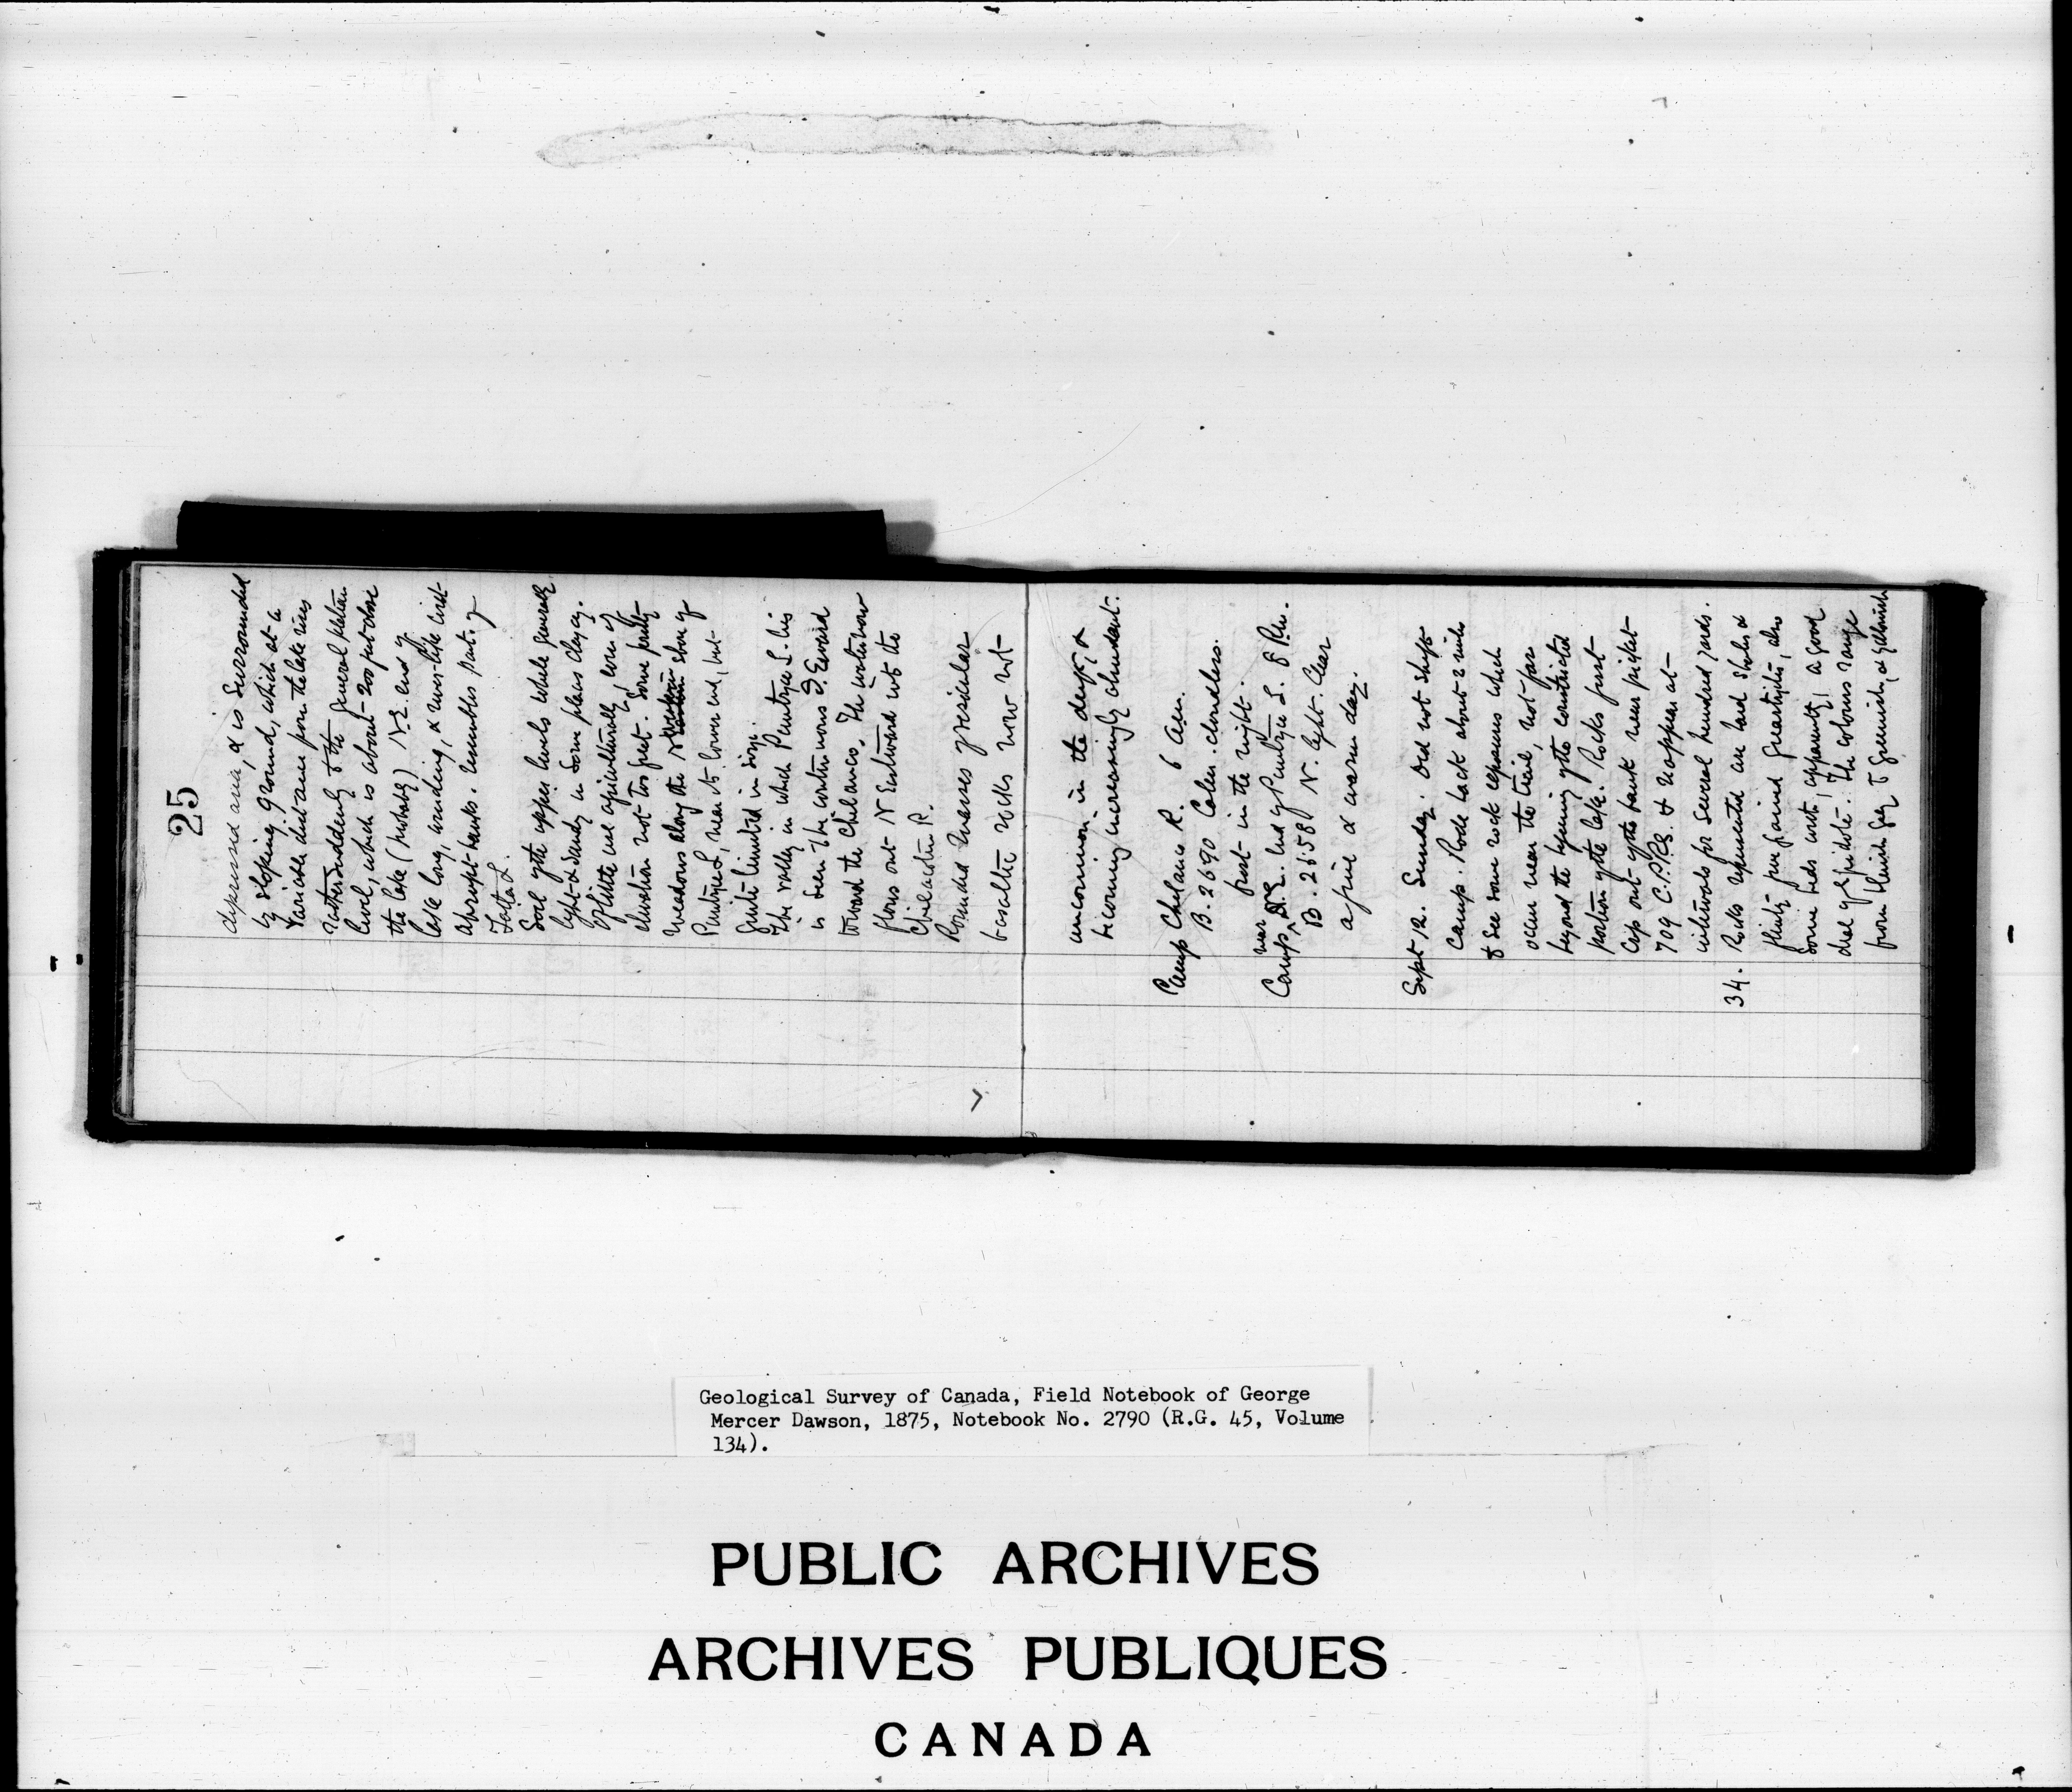 25
depressed area, & is surrounded
by sloping ground, which at a
variable distance from the lake rises
rather suddenly to the general plateau
level, which is about 200 feet above
the lake (probably) N.E. end of
lake long, winding, & river-like with
abrupt banks. resembles parts of
Tatla L.
Soil of the upper levels while generally
light & sandy in some places clayey.
Of little use agriculturally, even if
elevation not too great. Some pretty
meadows along the western shore of
Puntzee L, near its lower end, but
quite limited in size.
The valley in which Puntzee L. lies
is seen to be continuous S. Eward
toward the Chilanco. The water now
flows out N Eastward into the
Chilcotin R.
Rounded masses vesicular
basaltic rocks now not
uncommon in the drift, &
becoming increasingly abundant.
Camp Chilanco R. 6 a.m.
B. 2690 Calm. cloudless.
frost in the night.
Camp near N.E. end of Puntzee L. 8 P.m.
B. 2658 N. light. Clear
a fine & warm day.
Sept 12. Sunday. Did not shift
camp. Rode back about 2 miles
to see some rock exposures which
occur near the trail, not far
beyond the beginning of the constricted
portion of the lake. Rocks first
crop out of the bank near picket
709 C.P.R.S. & reappear at
intervals for several hundred yards.
34. Rocks represented are hard shales &
flinty fine grained quartzites, also
some beds with, apparently, a good
deal of epidote. The colours range
from bluish grey to greenish, & yellowish
Geological Survey of Canada, Field Notebook of George
Mercer Dawson, 1875, Notebook No. 2790 (R.G. 45, Volume
134).
PUBLIC ARCHIVES
ARCHIVES PUBLIQUES
CANADA